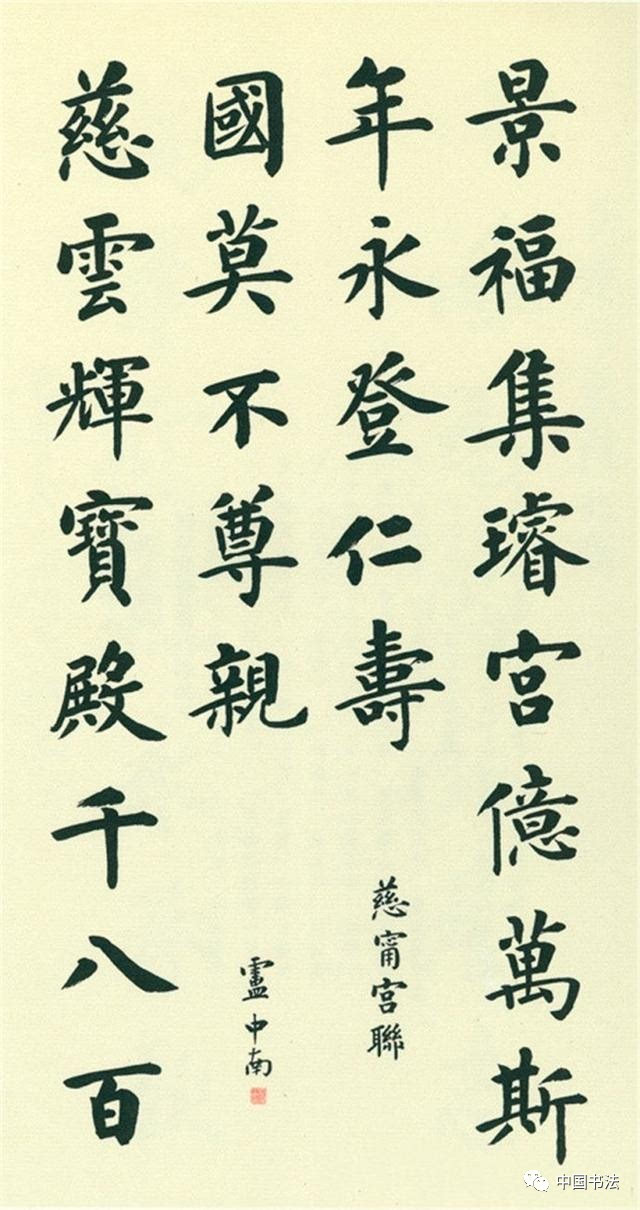 景福集璿宮億萬斯
年永登仁壽
慈甯宮聯
慈雲輝寶殿千八百
國莫不尊親
盧中南
中国书法